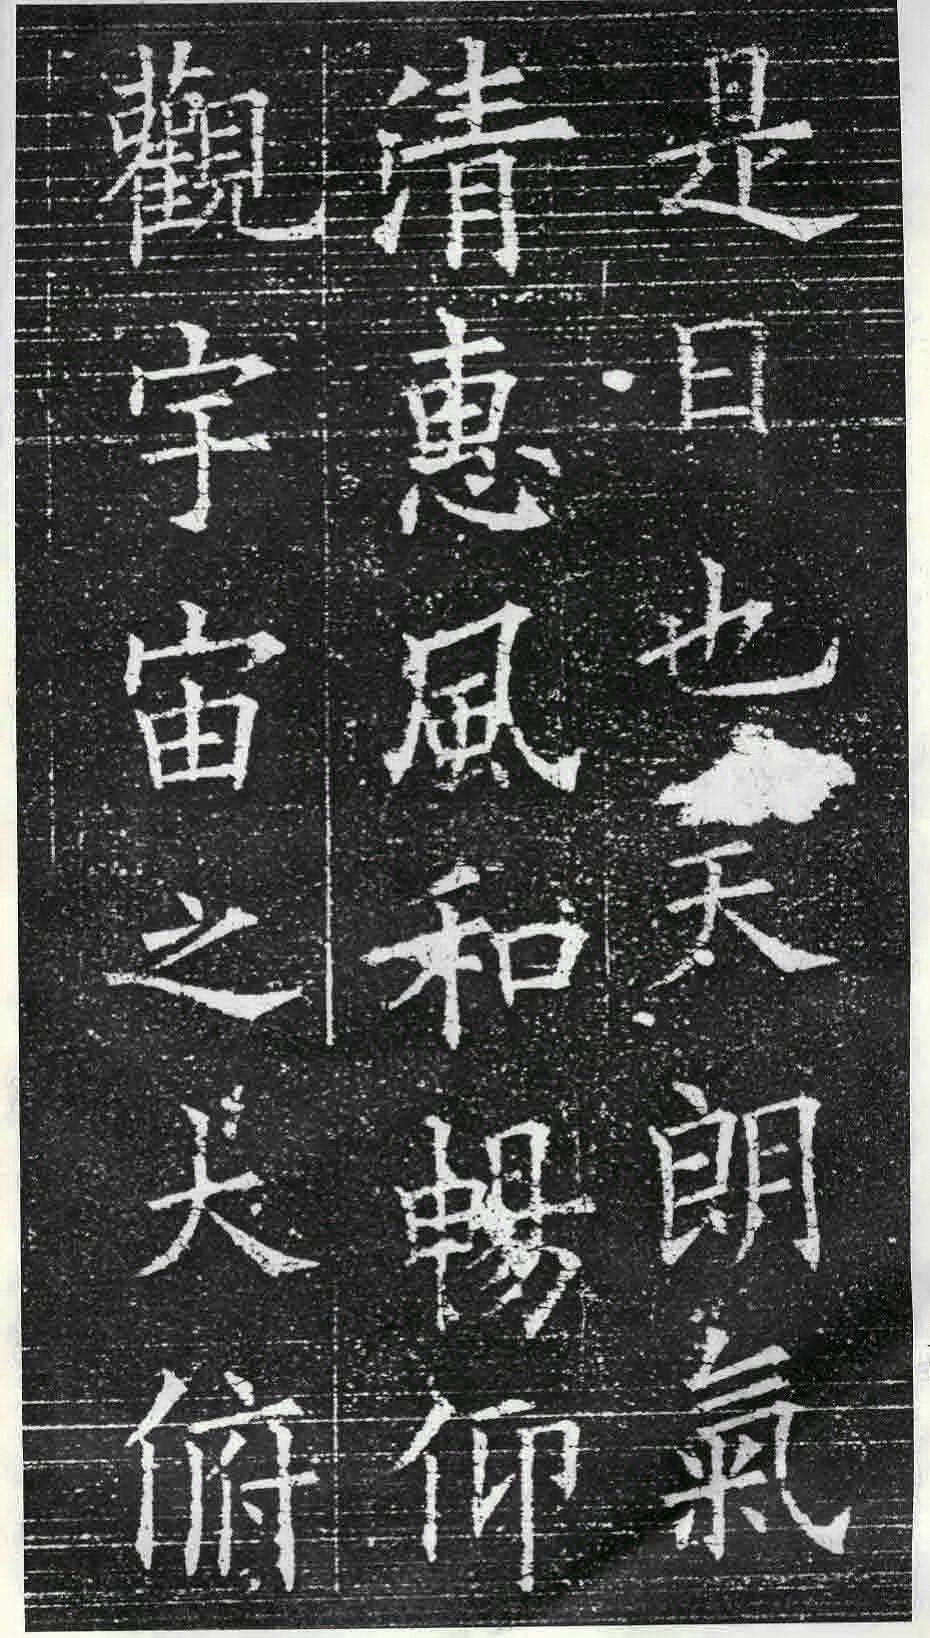 是日也天朗氣
清惠風和暢仰
觀宇宙之大俯